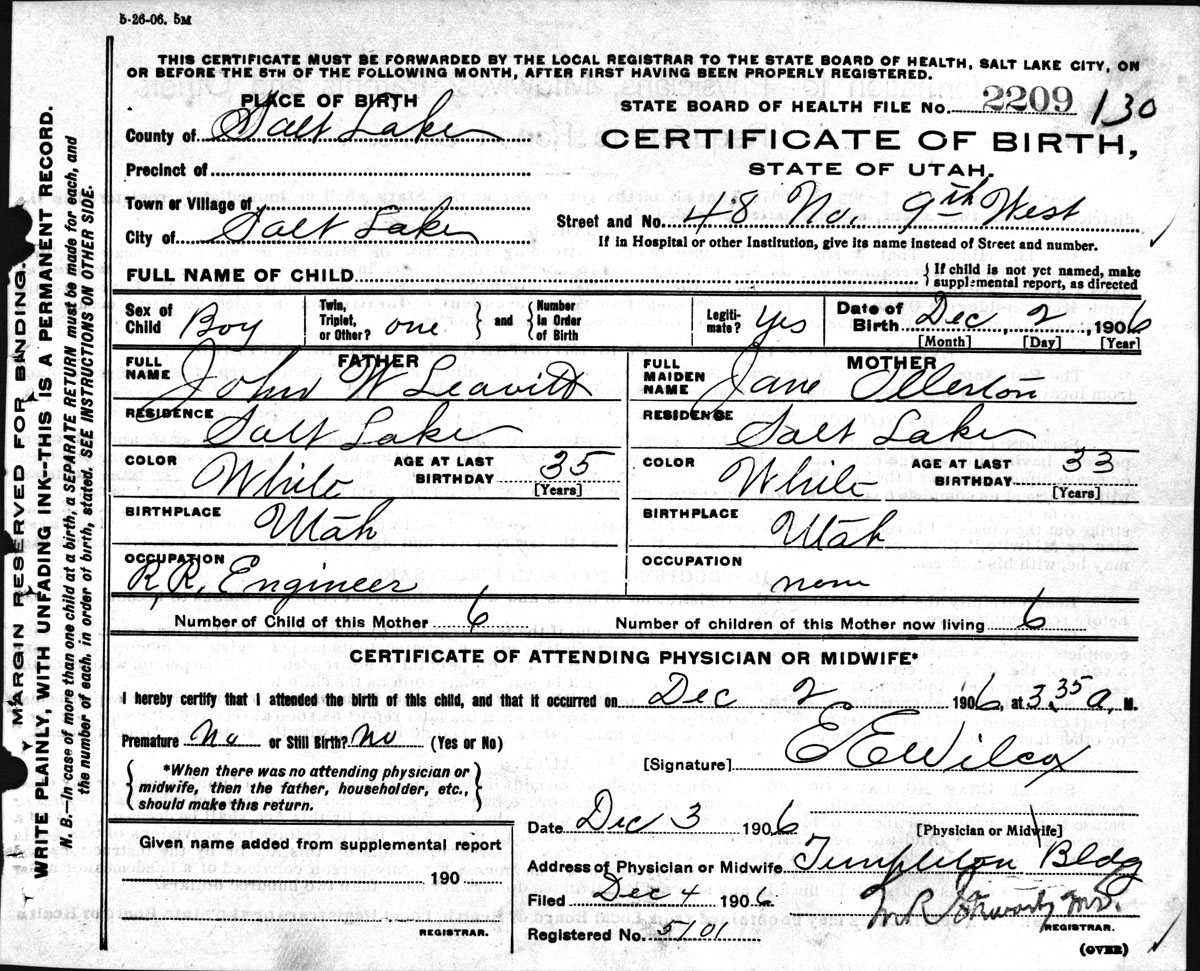 5-26-06. 5M
THIS CERTIFICATE MUST BE FORWARDED BY THE LOCAL REGISTRAR TO THE STATE BOARD OF HEALTH, SALT LAKE CITY, ON
OR BEFORE THE 5TH OF THE FOLLOWING MONTH, AFTER FIRST HAVING BEEN PROPERLY REGISTERED.
PLACE OF BIRTH
STATE BOARD OF HEALTH FILE No. 2209 130
County of Salt Lake
CERTIFICATE OF BIRTH,
STATE OF UTAH.
Precinct of
Town or Village of
Street and No. 48 No. 9th West
City of Salt Lake
If in Hospital or other Institution, give its name instead of Street and number.
FULL NAME OF CHILD
{ If child is not yet named, make
supplemental report, as directed
Sex of Child Boy
Twin, Triplet, or Other? one } and { Number in Order of Birth
Legitimate? yes
Date of Birth Dec 2, 1906
[Month] [Day] [Year]
FATHER
FULL NAME John W Leavitt
MOTHER
FULL MAIDEN NAME Jane Ollerton
RESIDENCE Salt Lake
RESIDENCE Salt Lake
COLOR White AGE AT LAST BIRTHDAY 35 [Years]
COLOR White AGE AT LAST BIRTHDAY 33 [Years]
BIRTHPLACE Utah
BIRTHPLACE Utah
OCCUPATION R,R, Engineer
OCCUPATION none
Number of Child of this Mother 6 Number of children of this Mother now living 6
CERTIFICATE OF ATTENDING PHYSICIAN OR MIDWIFE*
I hereby certify that I attended the birth of this child, and that it occurred on Dec 2 1906, at 3.35 a. M.
Premature No or Still Birth? No (Yes or No)
[Signature] E E Wilcox
{ *When there was no attending physician or
midwife, then the father, householder, etc.,
should make this return. }
Date Dec 3 1906 [Physician or Midwife]
Given name added from supplemental report
190
REGISTRAR.
Address of Physician or Midwife Templeton Bldg
Filed Dec 4 1906
M R
REGISTRAR.
Registered No. 5101
(OVER)
MARGIN RESERVED FOR BINDING.
WRITE PLAINLY, WITH UNFADING INK--THIS IS A PERMANENT RECORD.
N. B.—In case of more than one child at a birth, a SEPARATE RETURN must be made for each, and
the number of each, in order of birth, stated. SEE INSTRUCTIONS ON OTHER SIDE.